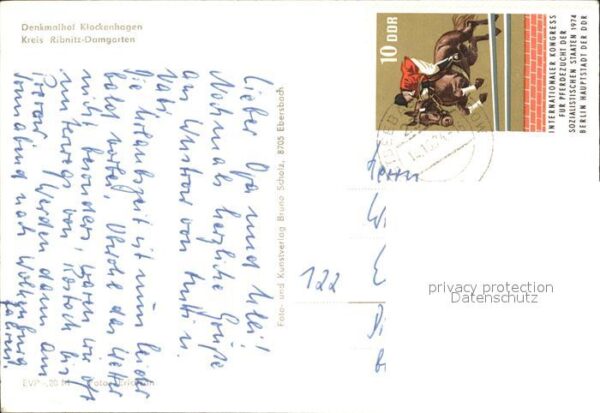 Denkmalhof Klockenhagen
Kreis Ribnitz-Damgarten
Lieber Opa und Uli!
Nochmals herzliche Grüße
am Wustrow von Mutti u.
Vati.
die Urlaubszeit ist nun leider
bald vorbei, Obwohl das Wetter
nicht besonders, waren wir oft
unterwegs von Rostock bis
Prerow. Werden dann am
Sonnabend nach Wolkenburg
fahren.
EVP -,20 M
Foto- und Kunstverlag Bruno Scholz, 8705 Ebersbach
10 DDR
INTERNATIONALER KONGRESS
FÜR PFERDEZUCHT DER
SOZIALISTISCHEN STAATEN 1974
BERLIN HAUPTSTADT DER DDR
Herrn
122
privacy protection
Datenschutz